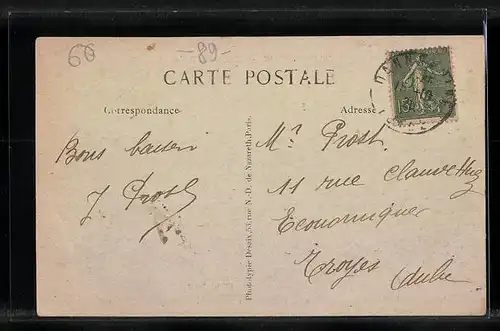 60
-89-
CARTE POSTALE
Correspondance
Adresse
Bons baisers
J Prost
Phototypie Desaix, 53, rue N. D. de Nazareth, Paris.
Mr Prost.
11 rue Claude Huez
Economique
Troyes Aube